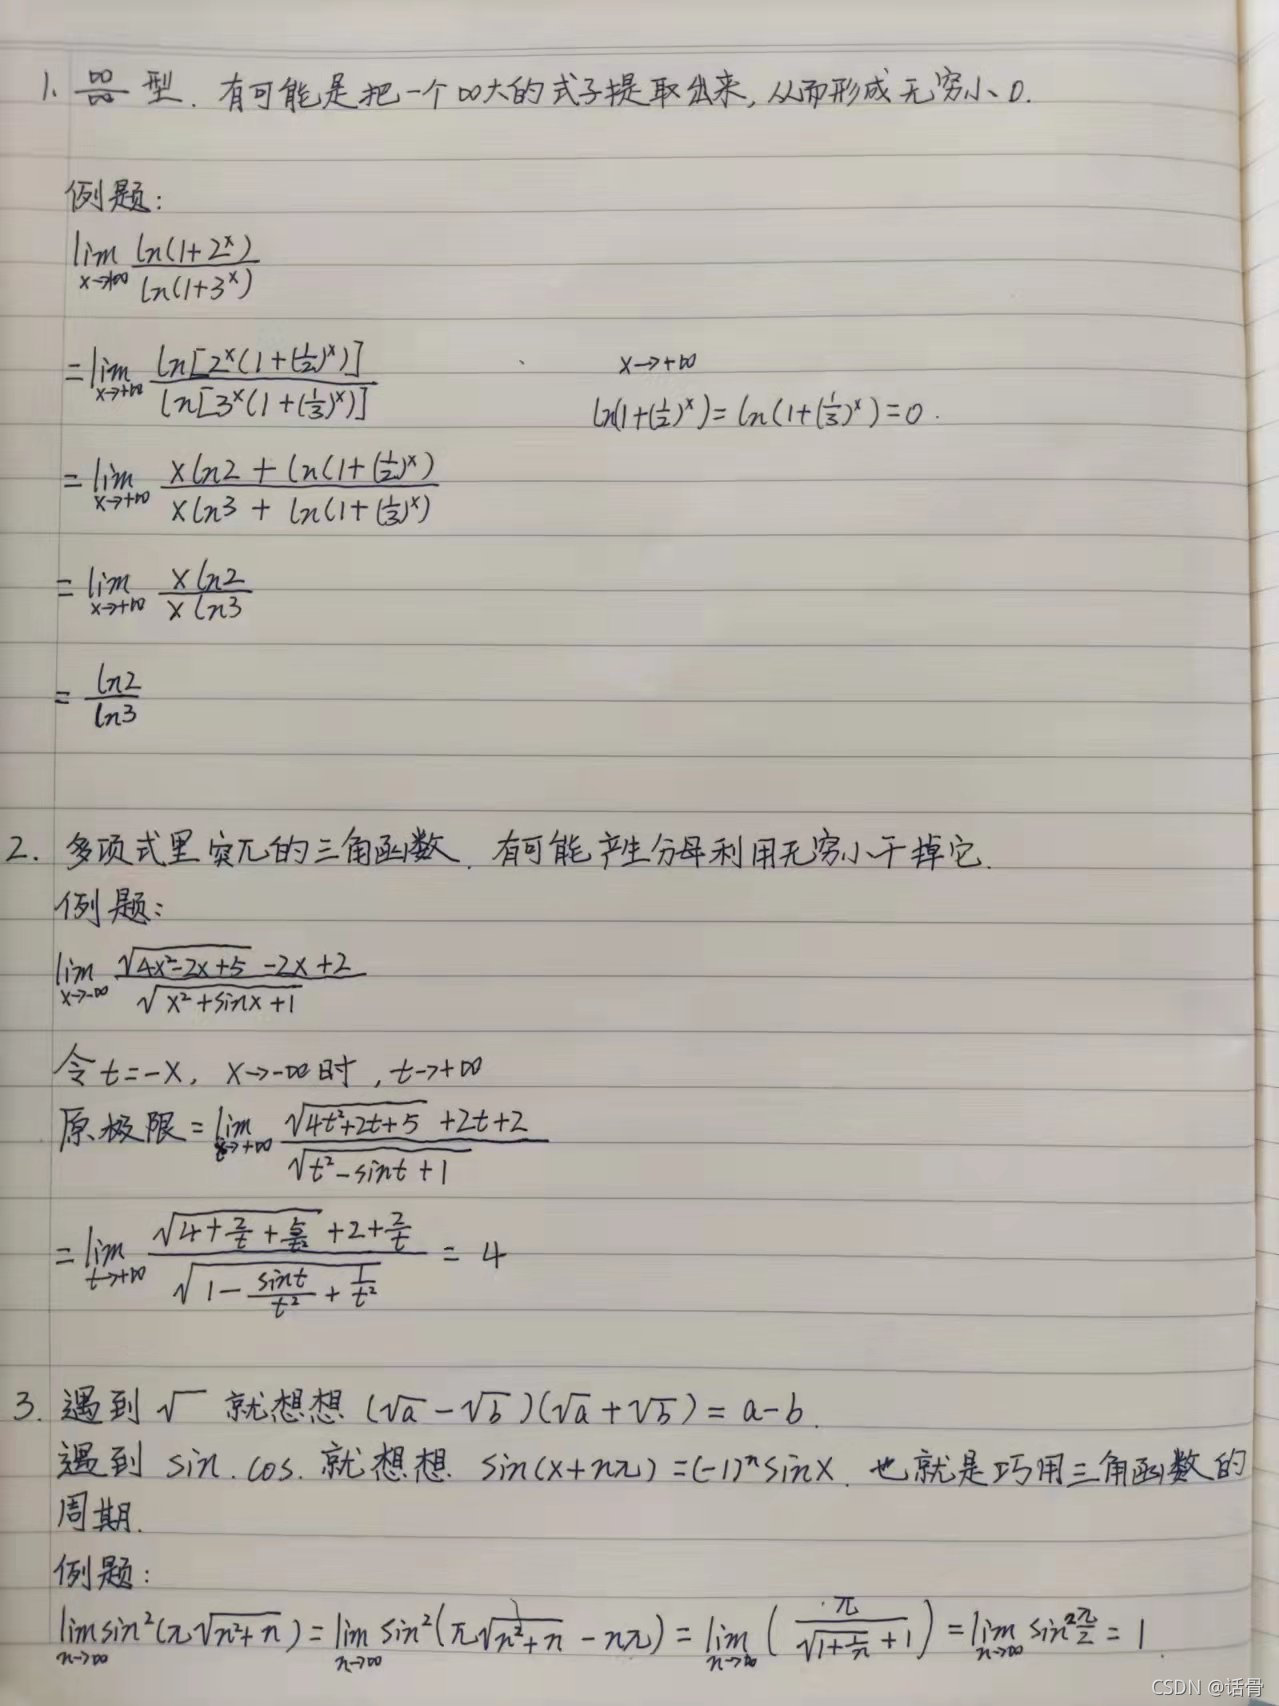 1. ∞/∞ 型. 有可能是把一个∞大的式子提取出来, 从而形成无穷小、0.
例题:
lim x→+∞ ln(1+2^x) / ln(1+3^x)
= lim x→+∞ ln[2^x(1+(1/2)^x)] / ln[3^x(1+(1/3)^x)]
x→+∞
ln(1+(1/2)^x) = ln(1+(1/3)^x) = 0.
= lim x→+∞ (x ln2 + ln(1+(1/2)^x)) / (x ln3 + ln(1+(1/3)^x))
= lim x→+∞ x ln2 / x ln3
= ln2 / ln3
2. 多项式里突兀的三角函数. 有可能产生分母利用无穷小干掉它.
例题:
lim x→-∞ (√(4x²-2x+5) -2x+2) / √(x²+sinx+1)
令 t=-x, x→-∞时, t→+∞
原极限 = lim t→+∞ (√(4t²+2t+5) +2t+2) / √(t²-sint+1)
= lim t→+∞ (√(4+2/t+5/t²) +2+2/t) / √(1-sint/t²+1/t²) = 4
3. 遇到√ 就想想 (√a-√b)(√a+√b) = a-b.
遇到 sin. cos. 就想想 sin(x+nπ) = (-1)^n sinx. 也就是巧用三角函数的
周期.
例题:
lim n→∞ sin²(π√(n²+n)) = lim n→∞ sin²(π√(n²+n) - nπ) = lim n→∞ (π / (√(1+1/n)+1)) = lim n→∞ sin² π/2 = 1
CSDN @话骨